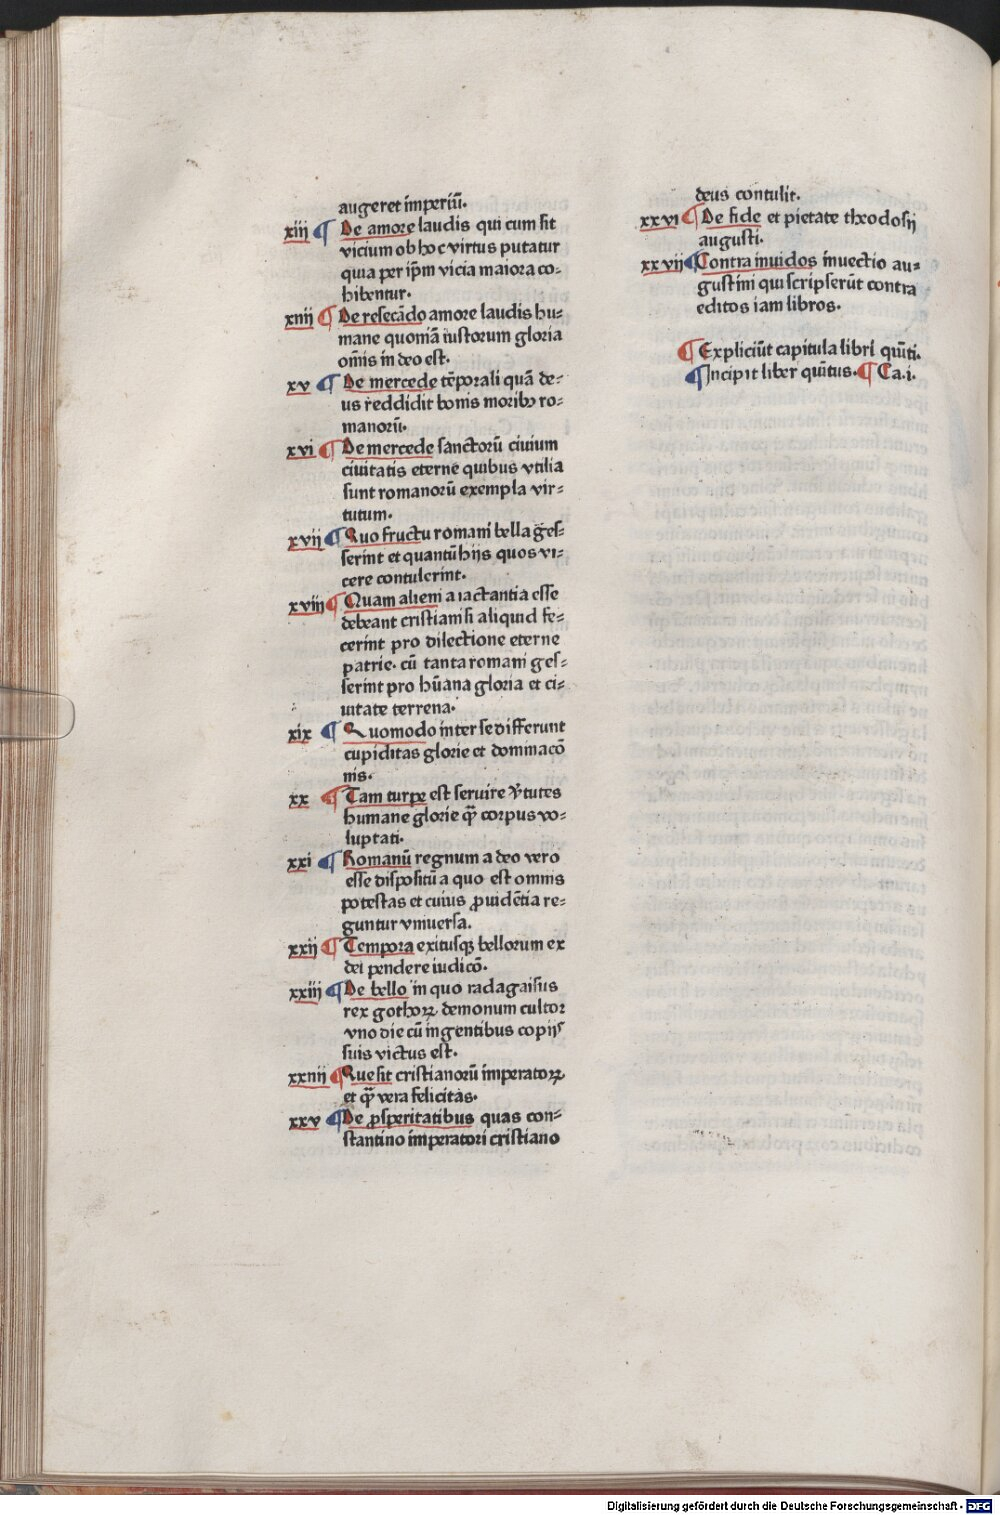 augeret imperiū.
xiij ¶ De amore laudis qui cum sit
vicium ob hoc virtus putatur
quia per ip̄m vicia maiora co-
hibentur.
xiiij ¶ De resecādo amore laudis hu-
mane quoniā iustorum gloria
om̄is in deo est.
xv ¶ De mercede tēporali quā de-
us reddidit bonis moribꝰ ro-
manorū.
xvi ¶ De mercede sanctorū ciuium
ciuitatis eterne quibus vtilia
sunt romanorū exempla vir-
tutum.
xvij ¶ Quo fructu romani bella ges-
serint et quantū hijs quos vi-
cere contulerint.
xviij ¶ Quam alieni a iactantia esse
debeant cristiani si aliquid fe-
cerint pro dilectione eterne
patrie. cū tanta romani ges-
serint pro hūana gloria et ci-
uitate terrena.
xix ¶ Quomodo inter se differunt
cupiditas glorie et dominacō
nis.
xx ¶ Tam turpe est seruire v̓tutes
humane glorie qᷓ corpus vo-
luptati.
xxi ¶ Romanū regnum a deo vero
esse dispositū a quo est omnis
potestas et cuius ꝓuidētia re-
guntur vniuersa.
xxij ¶ Tempora exitusqꝫ bellorum ex
dei pendere iudicō.
xxiij ¶ De bello in quo radagaisus
rex gothoꝝ demonum cultor
vno die cū ingentibus copijs
suis victus est.
xxiiij ¶ Que sit cristianorū imperatoꝝ
et qᷓ vera felicitas.
xxv ¶ De ꝓsperitatibus quas con-
stantino imperatori cristiano
deus contulit.
xxvi ¶ De fide et pietate theodosij
augusti.
xxvij ¶ Contra inuidos inuectio au-
gustini qui scripserūt contra
editos iam libros.
¶ Expliciūt capitula libri quīti.
¶ Incipit liber quītus. ¶ Ca. i.
Digitalisierung gefördert durch die Deutsche Forschungsgemeinschaft - DFG